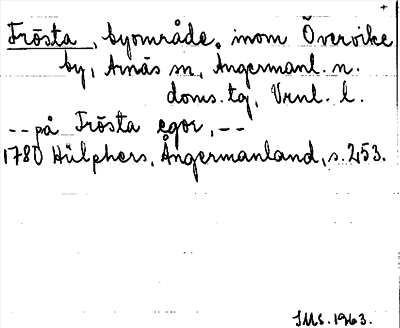 Frösta, byområde, inom Övervike
by, Arnäs sn, Ångermanl. n.
doms. tg, Vrnl. l.
-- på Frösta egor, --
1780 Hülphers, Ångermanland, s. 253.
JMS. 1963.